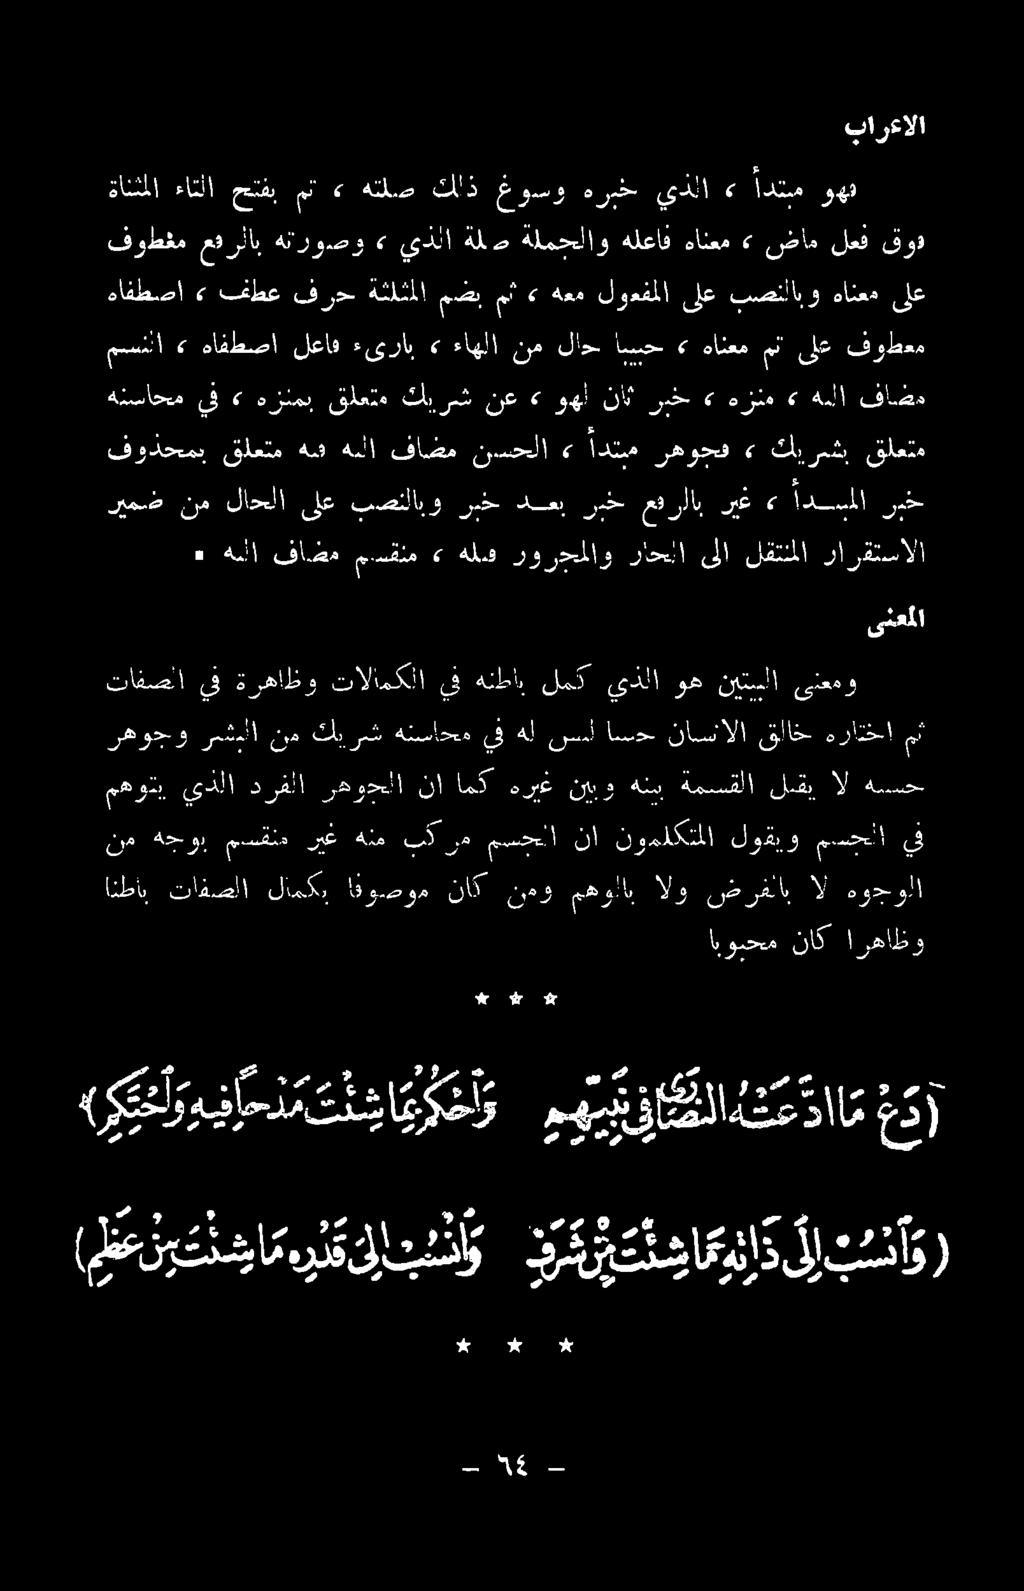 الاعراب
فهو مبتدأ ، الذي خبره وسوغ ذلك صلته ، تم بفتح التاء المثناة
فوق فعل ماض ، معناه فاعله والجملة صلة الذي ، وصورته بالرفع معطوف
على معناه وبالنصب على المفعول معه ، ثم بضم المثلثة حرف عطف ، اصطفاه
معطوف على تم معناه ، حبيبا حال من الهاء ، بارىء فاعل اصطفاه ، النسم
مضاف اليه ، منزه ، خبر ثان لهو ، عن شريك متعلق بمنزه ، في محاسنه
متعلق بشريك ، فجوهر مبتدأ ، الحسن مضاف اليه فيه متعلق بمحذوف
خبر المبتدأ ، غير بالرفع خبر بعد خبر وبالنصب على الحال من ضمير
الاستقرار المنتقل الى الجار والمجرور قبله ، منقسم مضاف اليه .
المعنى
ومعنى البيتين هو الذي كمل باطنه في الكمالات وظاهره في الصفات
ثم اختاره خالق الانسان حبيبا ليس له في محاسنه شريك من البشر وجوهر
حسنه لا يقبل القسمة بينه وبين غيره كما ان الجوهر الفرد الذي يتوهم
في الجسم ويقول المتكلمون ان الجسم مركب منه غير منقسم بوجه من
الوجوه لا بالفرض ولا بالوهم ومن كان موصوفا بكمال الصفات باطنا
وظاهرا كان محبوبا
* * *
(دَعْ مَا ادَّعَتْهُ النَّصَارَى فِي نَبِيِّهِمِ وَاحْكُمْ بِمَا شِئْتَ مَدْحًا فِيهِ وَاحْتَكِمِ)
(وَانْسُبْ إِلَى ذَاتِهِ مَا شِئْتَ مِنْ شَرَفٍ وَانْسُبْ إِلَى قَدْرِهِ مَا شِئْتَ مِنْ عِظَمِ)
* * *
– ٦٤ –